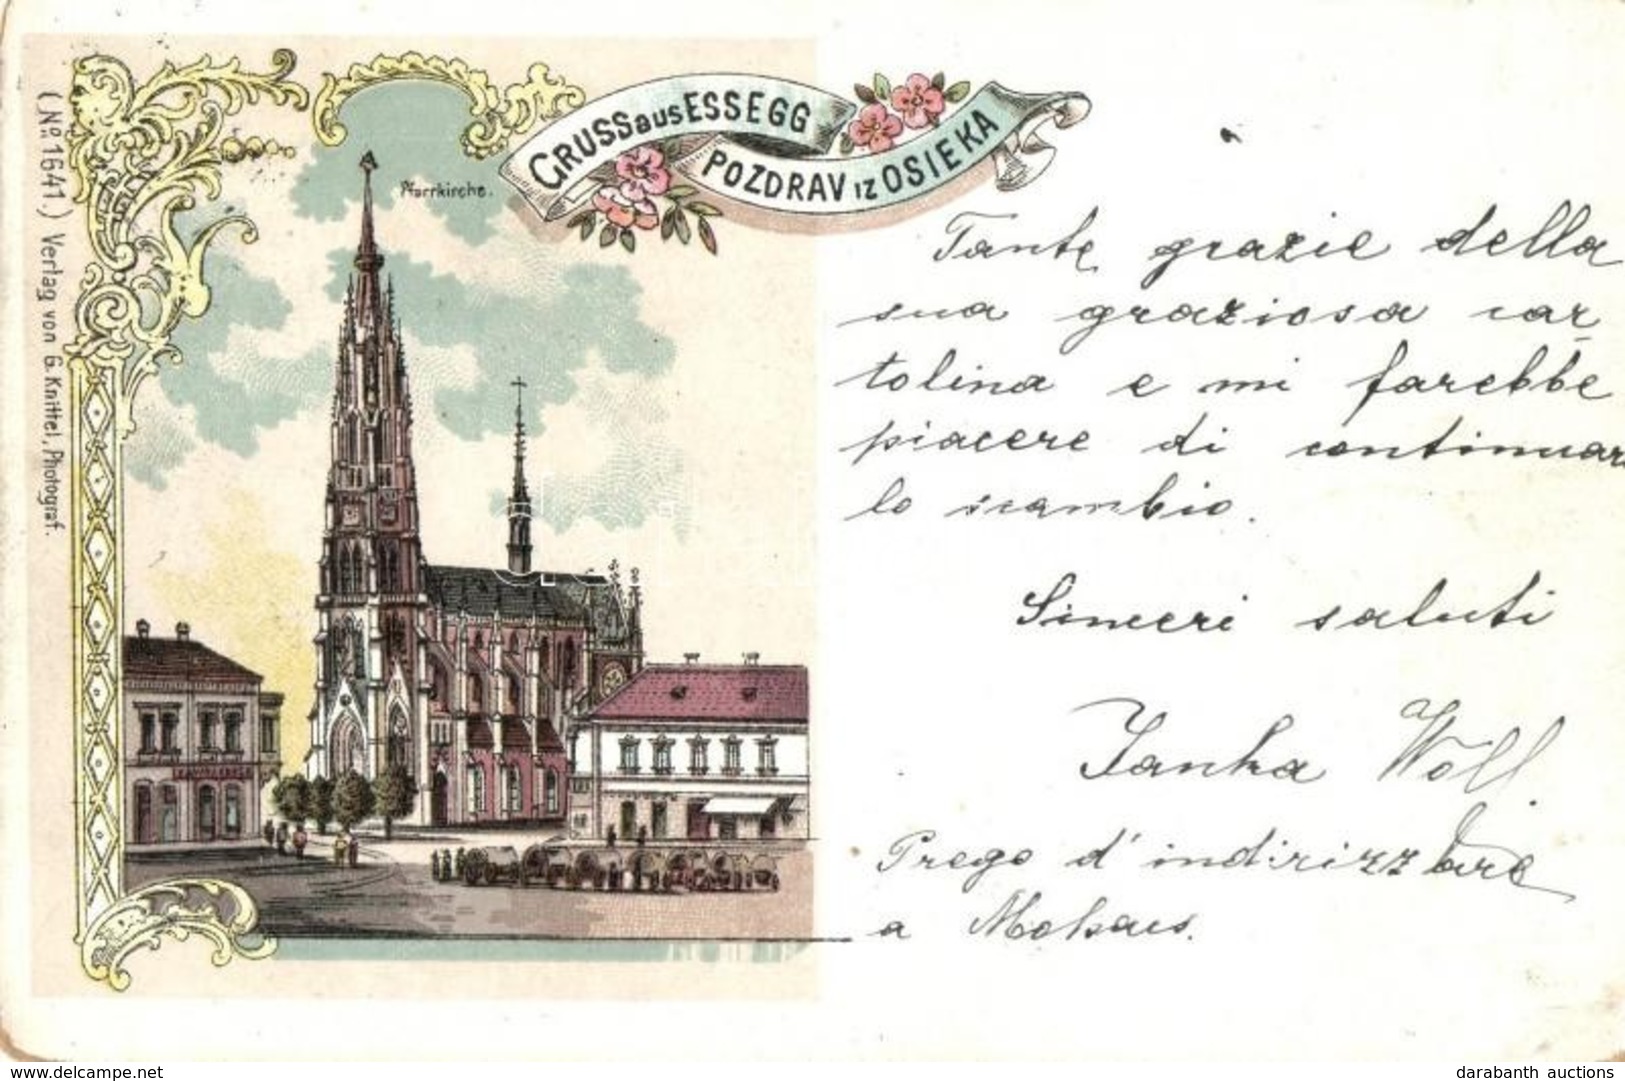 GRUSS aus ESSEGG
POZDRAV IZ OSIEKA
Pfarrkirche.
(No. 1641.) Verlag von G. Knittel, Photograf.
Tante grazie della
sua graziosa car
tolina e mi farebbe
piacere di continuare
lo scambio.
Sinceri saluti
Janka Woll
Prego d'indirizzare
a Mohacs.
www.delcampe.net
darabanth auctions